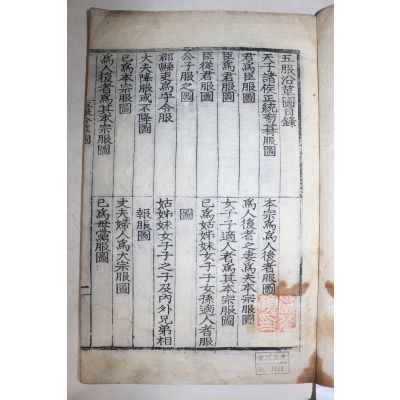 五服沿革圖目錄
天子諸侯正統旁朞服圖
君爲臣服圖
臣爲君服圖
臣從君服圖
公子服之圖
郡縣吏爲守令服圖
大夫降服或不降圖
己爲本宗服圖
爲人後者爲其本宗服圖
本宗爲爲人後者服圖
爲人後者之妻爲夫本宗服圖
女子子適人者爲其本宗服圖
己爲姑姊妹女子子女孫適人者服
圖
姑姊妹女子子之子及內外兄弟相
報服圖
丈夫婦人爲大宗服圖
己爲母黨服圖
一